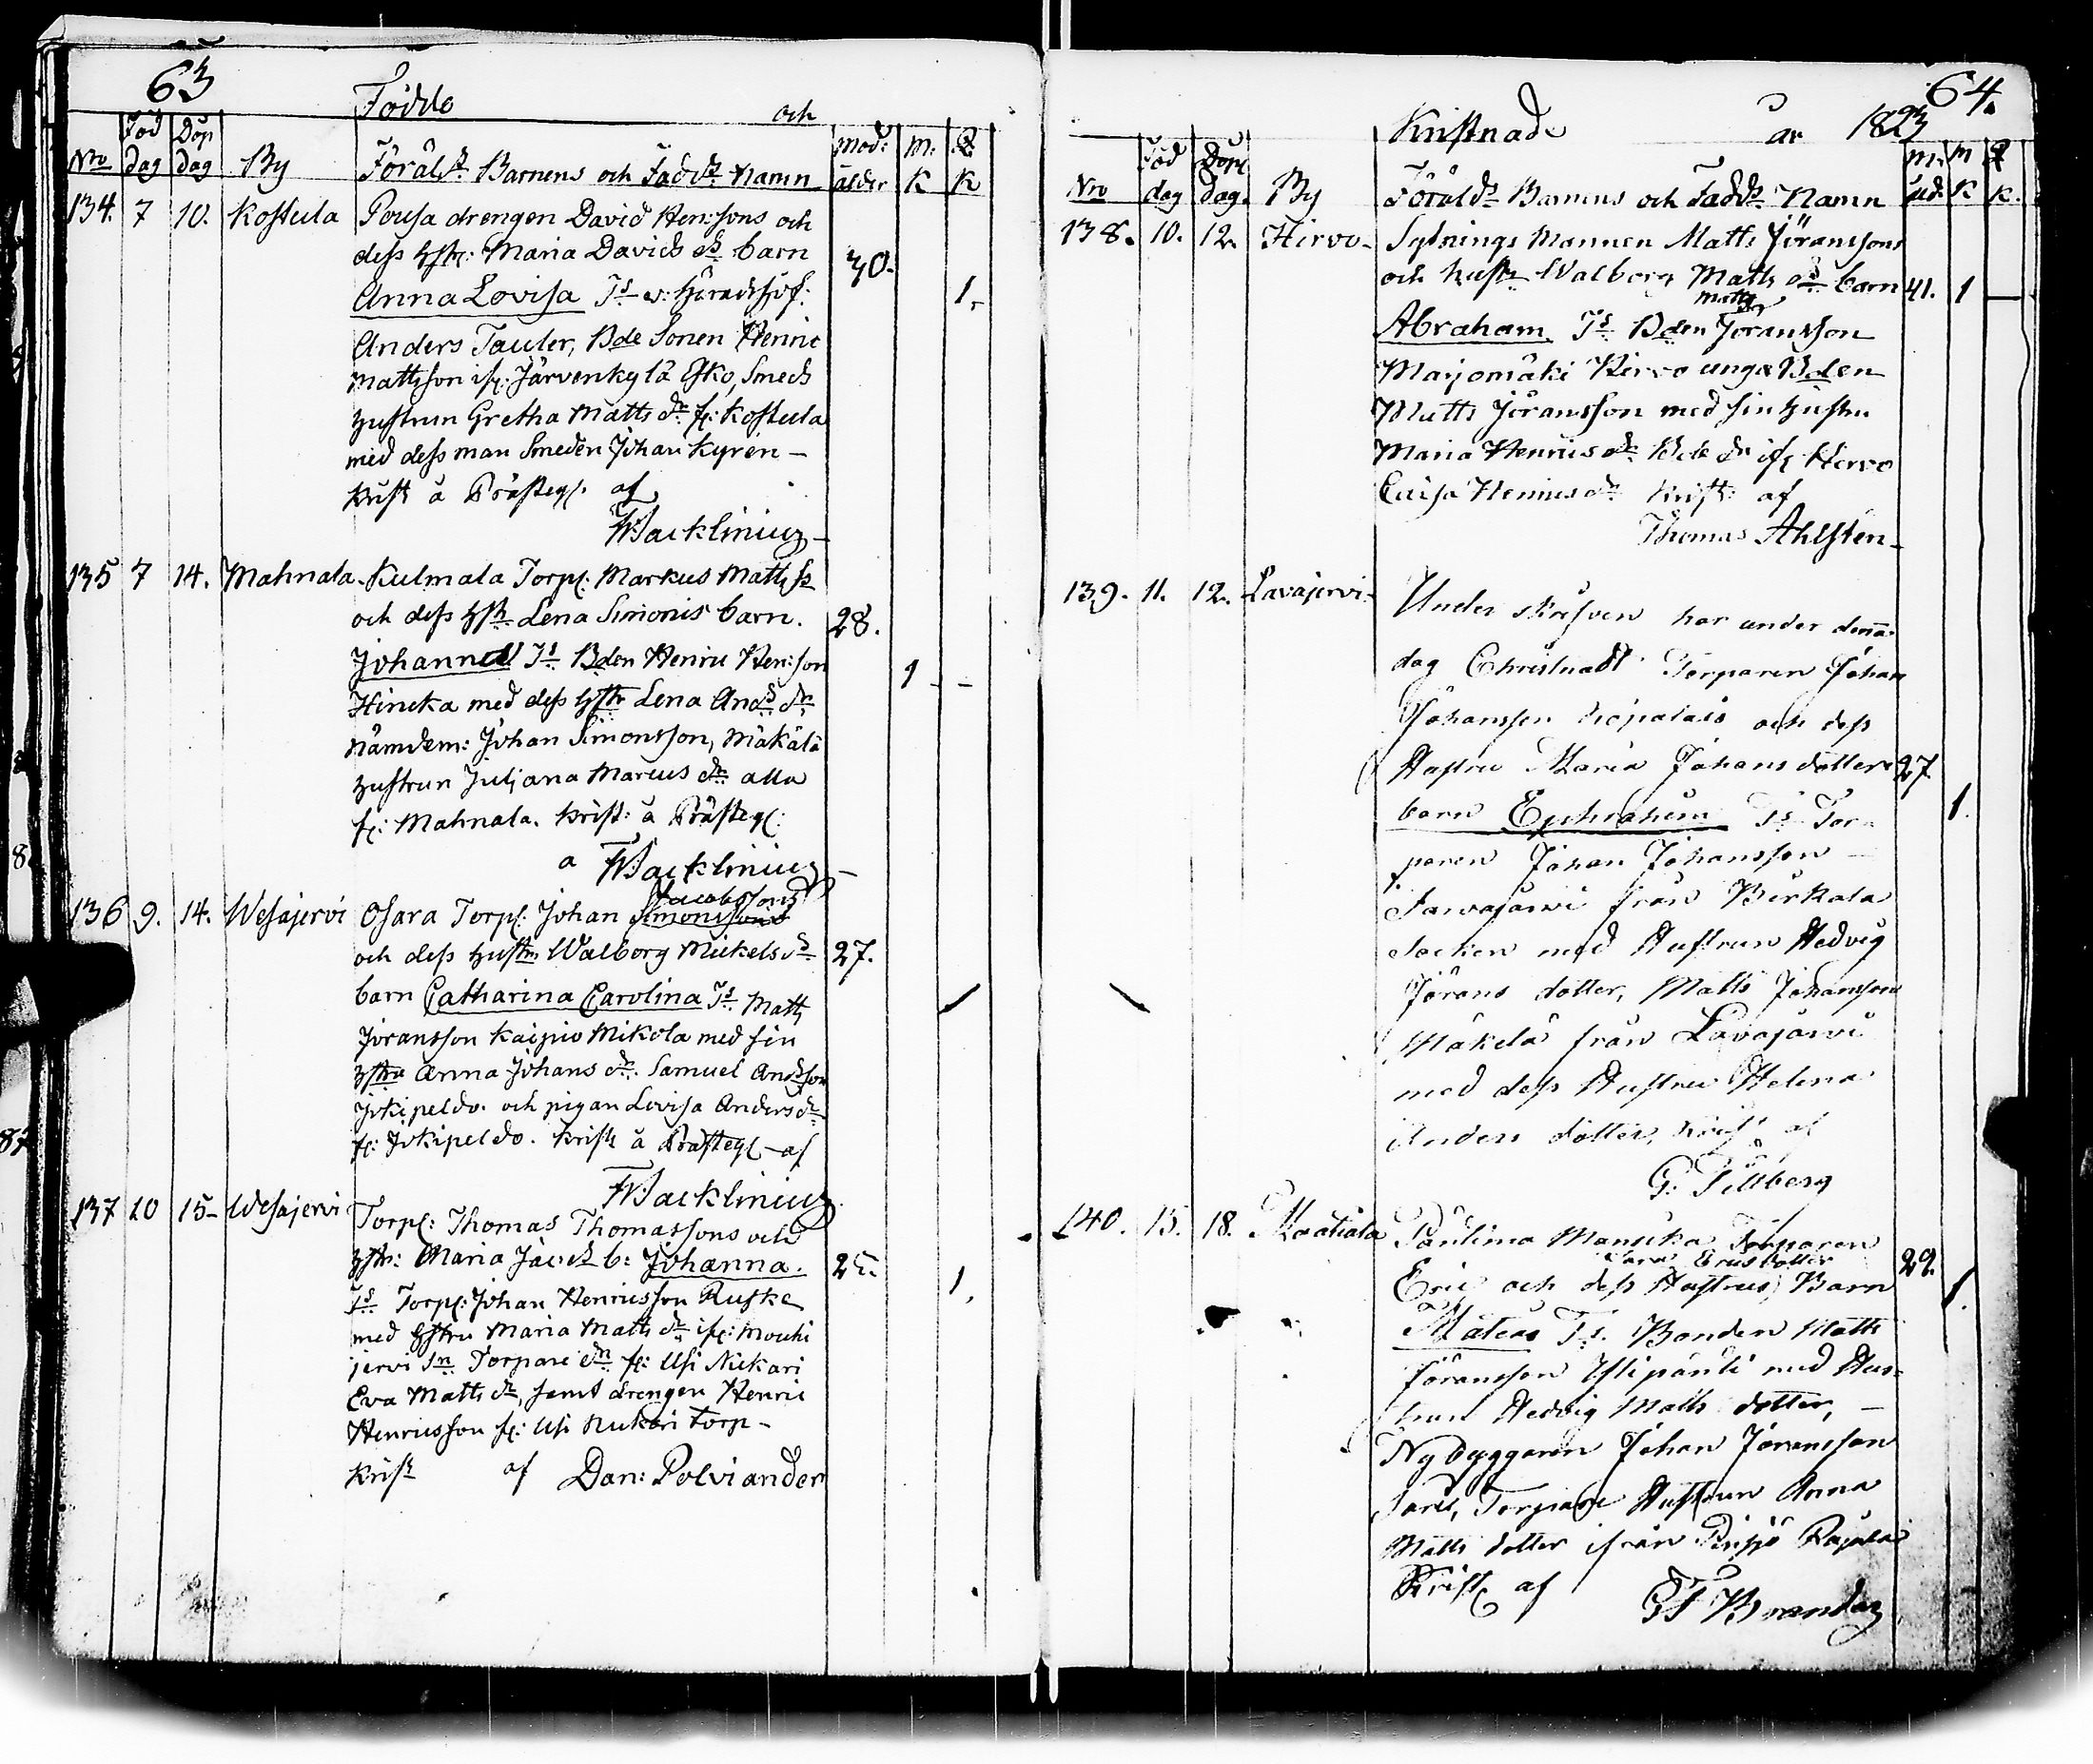 63
Födde och
Nro Föd dag Döp dag By Föräld:rs Barnens och Fadd:rs Namn Mod: ålder M: K Q. K
134. 7 10. Kostula Pousa drengen David Hen:sons och
dess hstr: Maria Davids dr. barn 30.
Anna Lovisa Ts v: häradshöf: 1.
Anders Tauler, Bde Sonen Henric
Mattsson ifr: Järvenkylä Esko, Smeds
hustrun Gretha Matts dr. fr: Kostula
med dess man Smeden Johan Kyrén
Krist. å Prästeg: af
W:Backlinius
135 7 14. Mahnala Kulmala Torp: Markus Matts s
och dess hstr. Lena Simonis barn. 28.
Johannes Ts Bden Henric Hen:son 1 -
Hincka med dess hstr Lena Ands dr
Nämdem: Johan Simonsson, Mäkälä
hustrun Juljana Marcus dr. alla
fr: Mahnala. Krist: å Prästeg:
a W:Backlinius
Jacobssons
136 9. 14. Wesajervi Osara Torp: Johan Simonssons
och dess hustru Walborg Mickels d. 27.
barn Catharina Carolina Ts. Matts
Joransson Kaipio Mikola med sin
hstru Anna Johans dr. Samuel Andsson
Jokipeldo. och pigan Lovisa Anders dr
fr: Jokipeldo. Krist. å Prästeg af
W:Backlinius
137 10 15 Wesajervi Torp: Thomas Thomassons och
hstr: Maria Jacs dr b: Johanna. 25. 1.
Ts Torp: Johan Henricsson Ruske
med hstru Maria Matts dr. ifr: Mouhi
jervi Sn Torpare dn fr: Usi Nickari
Eva Matts dr, samt drengen Henric
Henricsson fr: Usi Nickari Torp
Krist af Dan: Polviander
64.
Kristnade år 1823
Nro Föd dag Döpe dag. By Föräld:rs Barnens och Fadd:rs Namn M: åld: M K Q K.
138. 10. 12. Hirvo Sytnings Mannen Matts Jöranssons
och hustr Walborg Matts dr barn 41. 1
Matts
Abraham. Ts. Bden Joransson
Marjomäki Hirvo unga Bden
Matts Jöransson med sin hustru
Maria Henrics dr. Bde dr ifr Hirvo
Caisa Henrics dr Krist: af
Thomas Ahlsten
139. 11. 12. Lavajervi Under skrifven har under denna
dag Christnadt Torparen Johan
Johansson och dess
Hustru Maria Johans dotters 27
barn Ephrahim Ts Tor- 1.
paren Johan Johansson
Sarvajärvi från Birkala
Socken med Hustrun Hedvig
Jörans dotter, Matts Johansson
Mäkelä från Lavajärvi
med dess Hustru Helena
Anders dotter, Krist af
G: Tillberg
140. 15. 18. Maatiala Päntima Mansika Torparen
Sara Ericsdotter
Eric och dess Hustrus Barn 29. 1.
Mateus Ts. Bonden Matts
Jöransson Ylipänti med Hus-
trun Hedvig Matts dotter,
Nybyggaren Johan Jöransson
Torpare Hustrun Anna
Matts dotter ifrån Pinsjö Rajala
Krist af